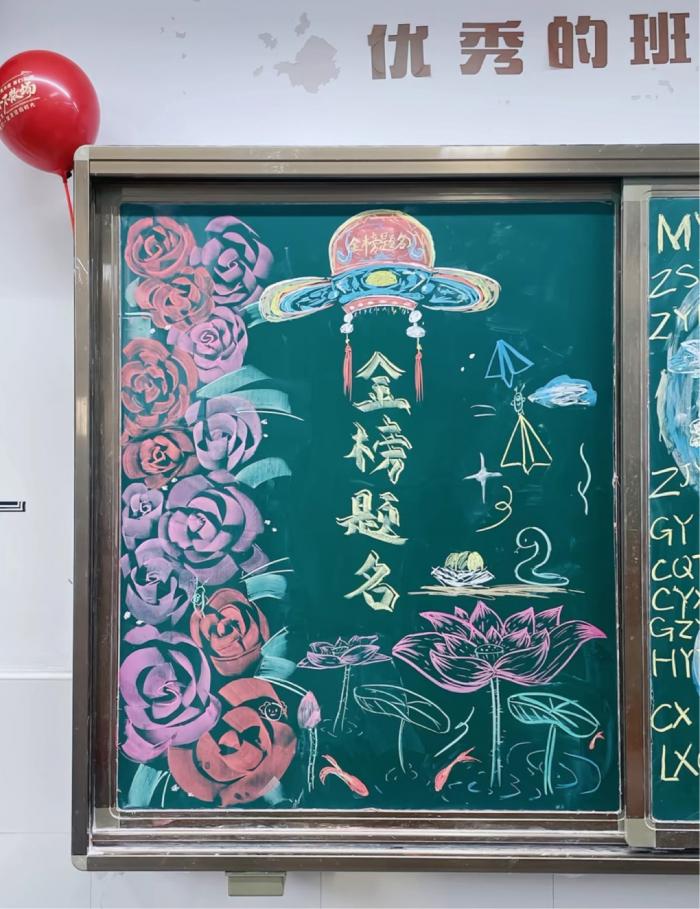 优秀的班
不散场
金榜题名
金
榜
题
名
M
ZS
ZY
Z
GY
CQ
CY
GZ
HY
CX
LX